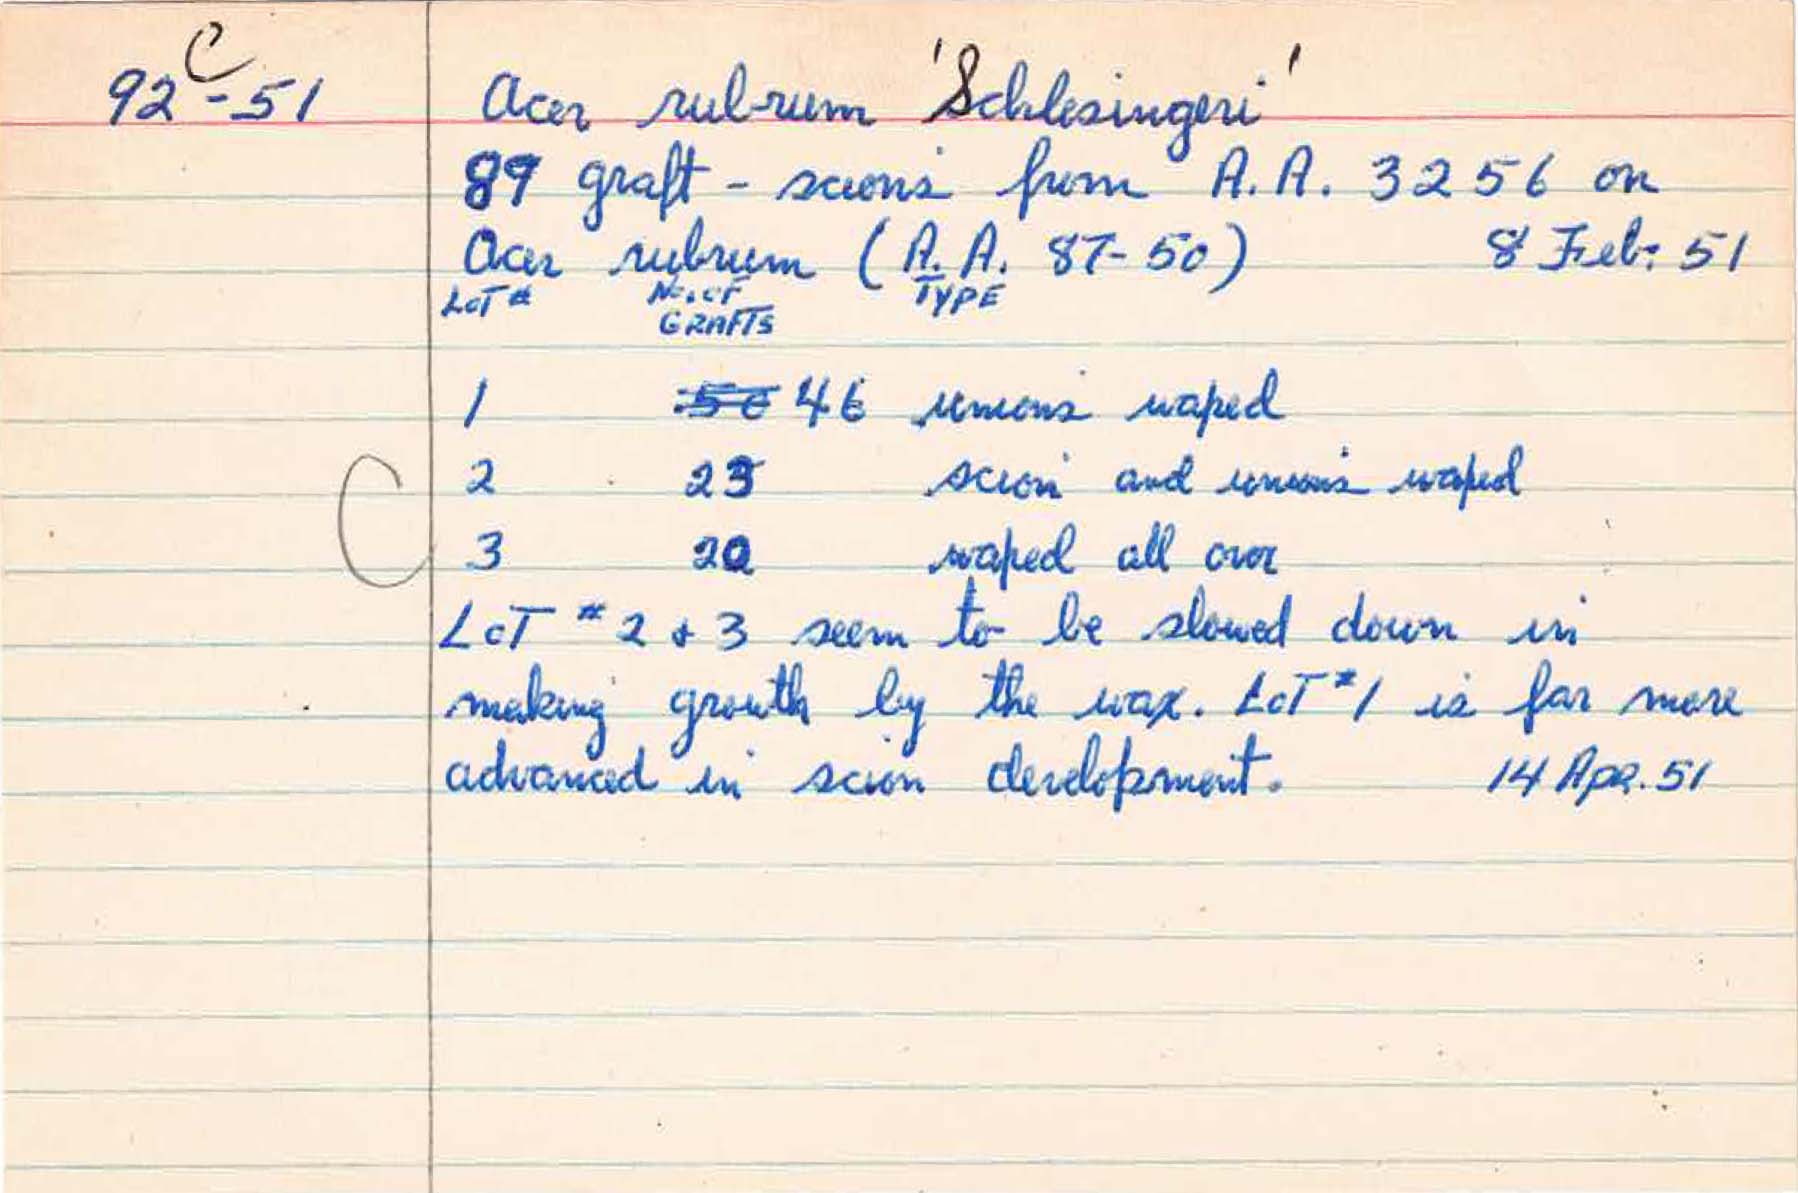 C
92-51 Acer rubrum 'Schlesingeri'
89 graft - scions from A.A. 3256 on
Acer rubrum (A.A. 87-50) 8 Feb. 51
LOT # No. OF TYPE
GRAFTS
1 50 46 unions waxed
2 23 scion and unions waxed
C
3 20 waxed all over
LOT # 2 + 3 seem to be slowed down in
making growth by the wax. LOT # 1 is far more
advanced in scion development. 14 Apr. 51